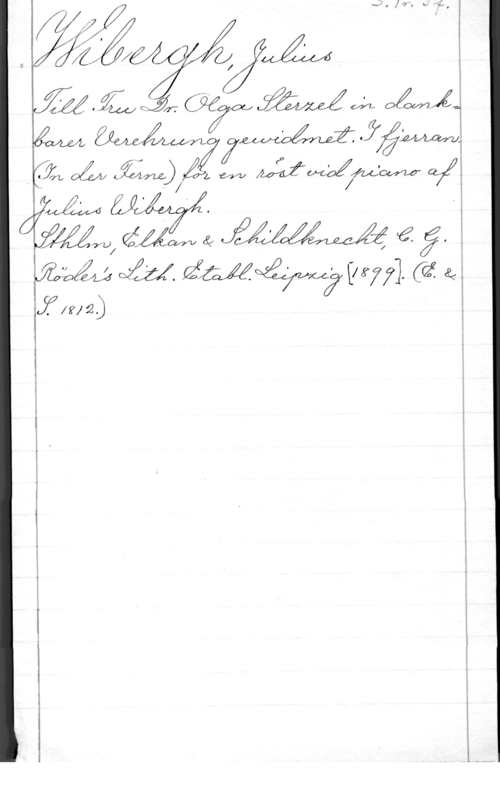 Wibergh, Julius
Till Fru Dr. Olga Sterzel in dank-
barer Verehrung gewidmet. I fjerran.
(In der Ferne) för en röst vid piano af
Julius Wibergh.
Sthlm, Elkan & Schildknecht, C. G.
Röder's Lith. Etabl. Leipzig [1899]. (E. &
S. 1812.)